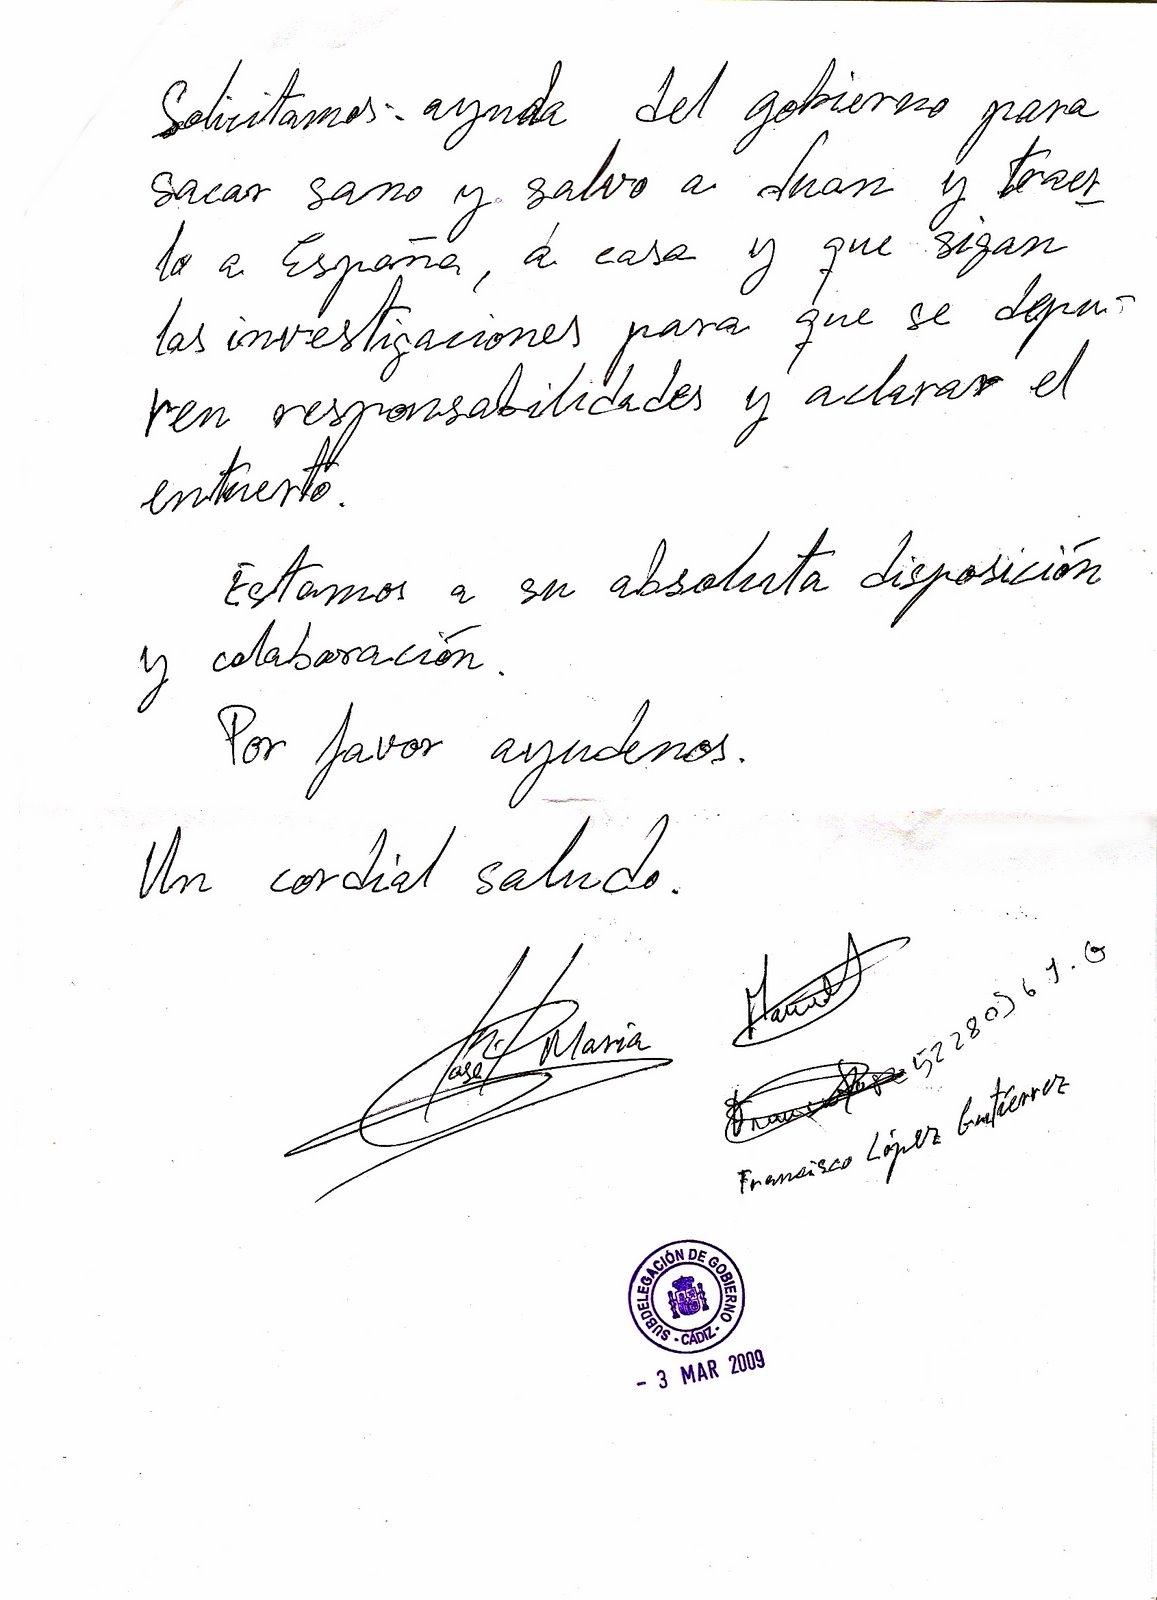 Solicitamos ayuda del gobierno para
sacar sano y salvo a Juan y traer_
lo a España, a casa y que sigan
las investigaciones para que se depu-
ren responsabilidades y aclarar el
entuerto.
Estamos a su absoluta disposición
y colaboración.
Por favor ayudenos.
Un cordial saludo.
José María
Manuel
Francisco López Gutiérrez
SUBDELEGACIÓN DE GOBIERNO
- CÁDIZ -
- 3 MAR 2009